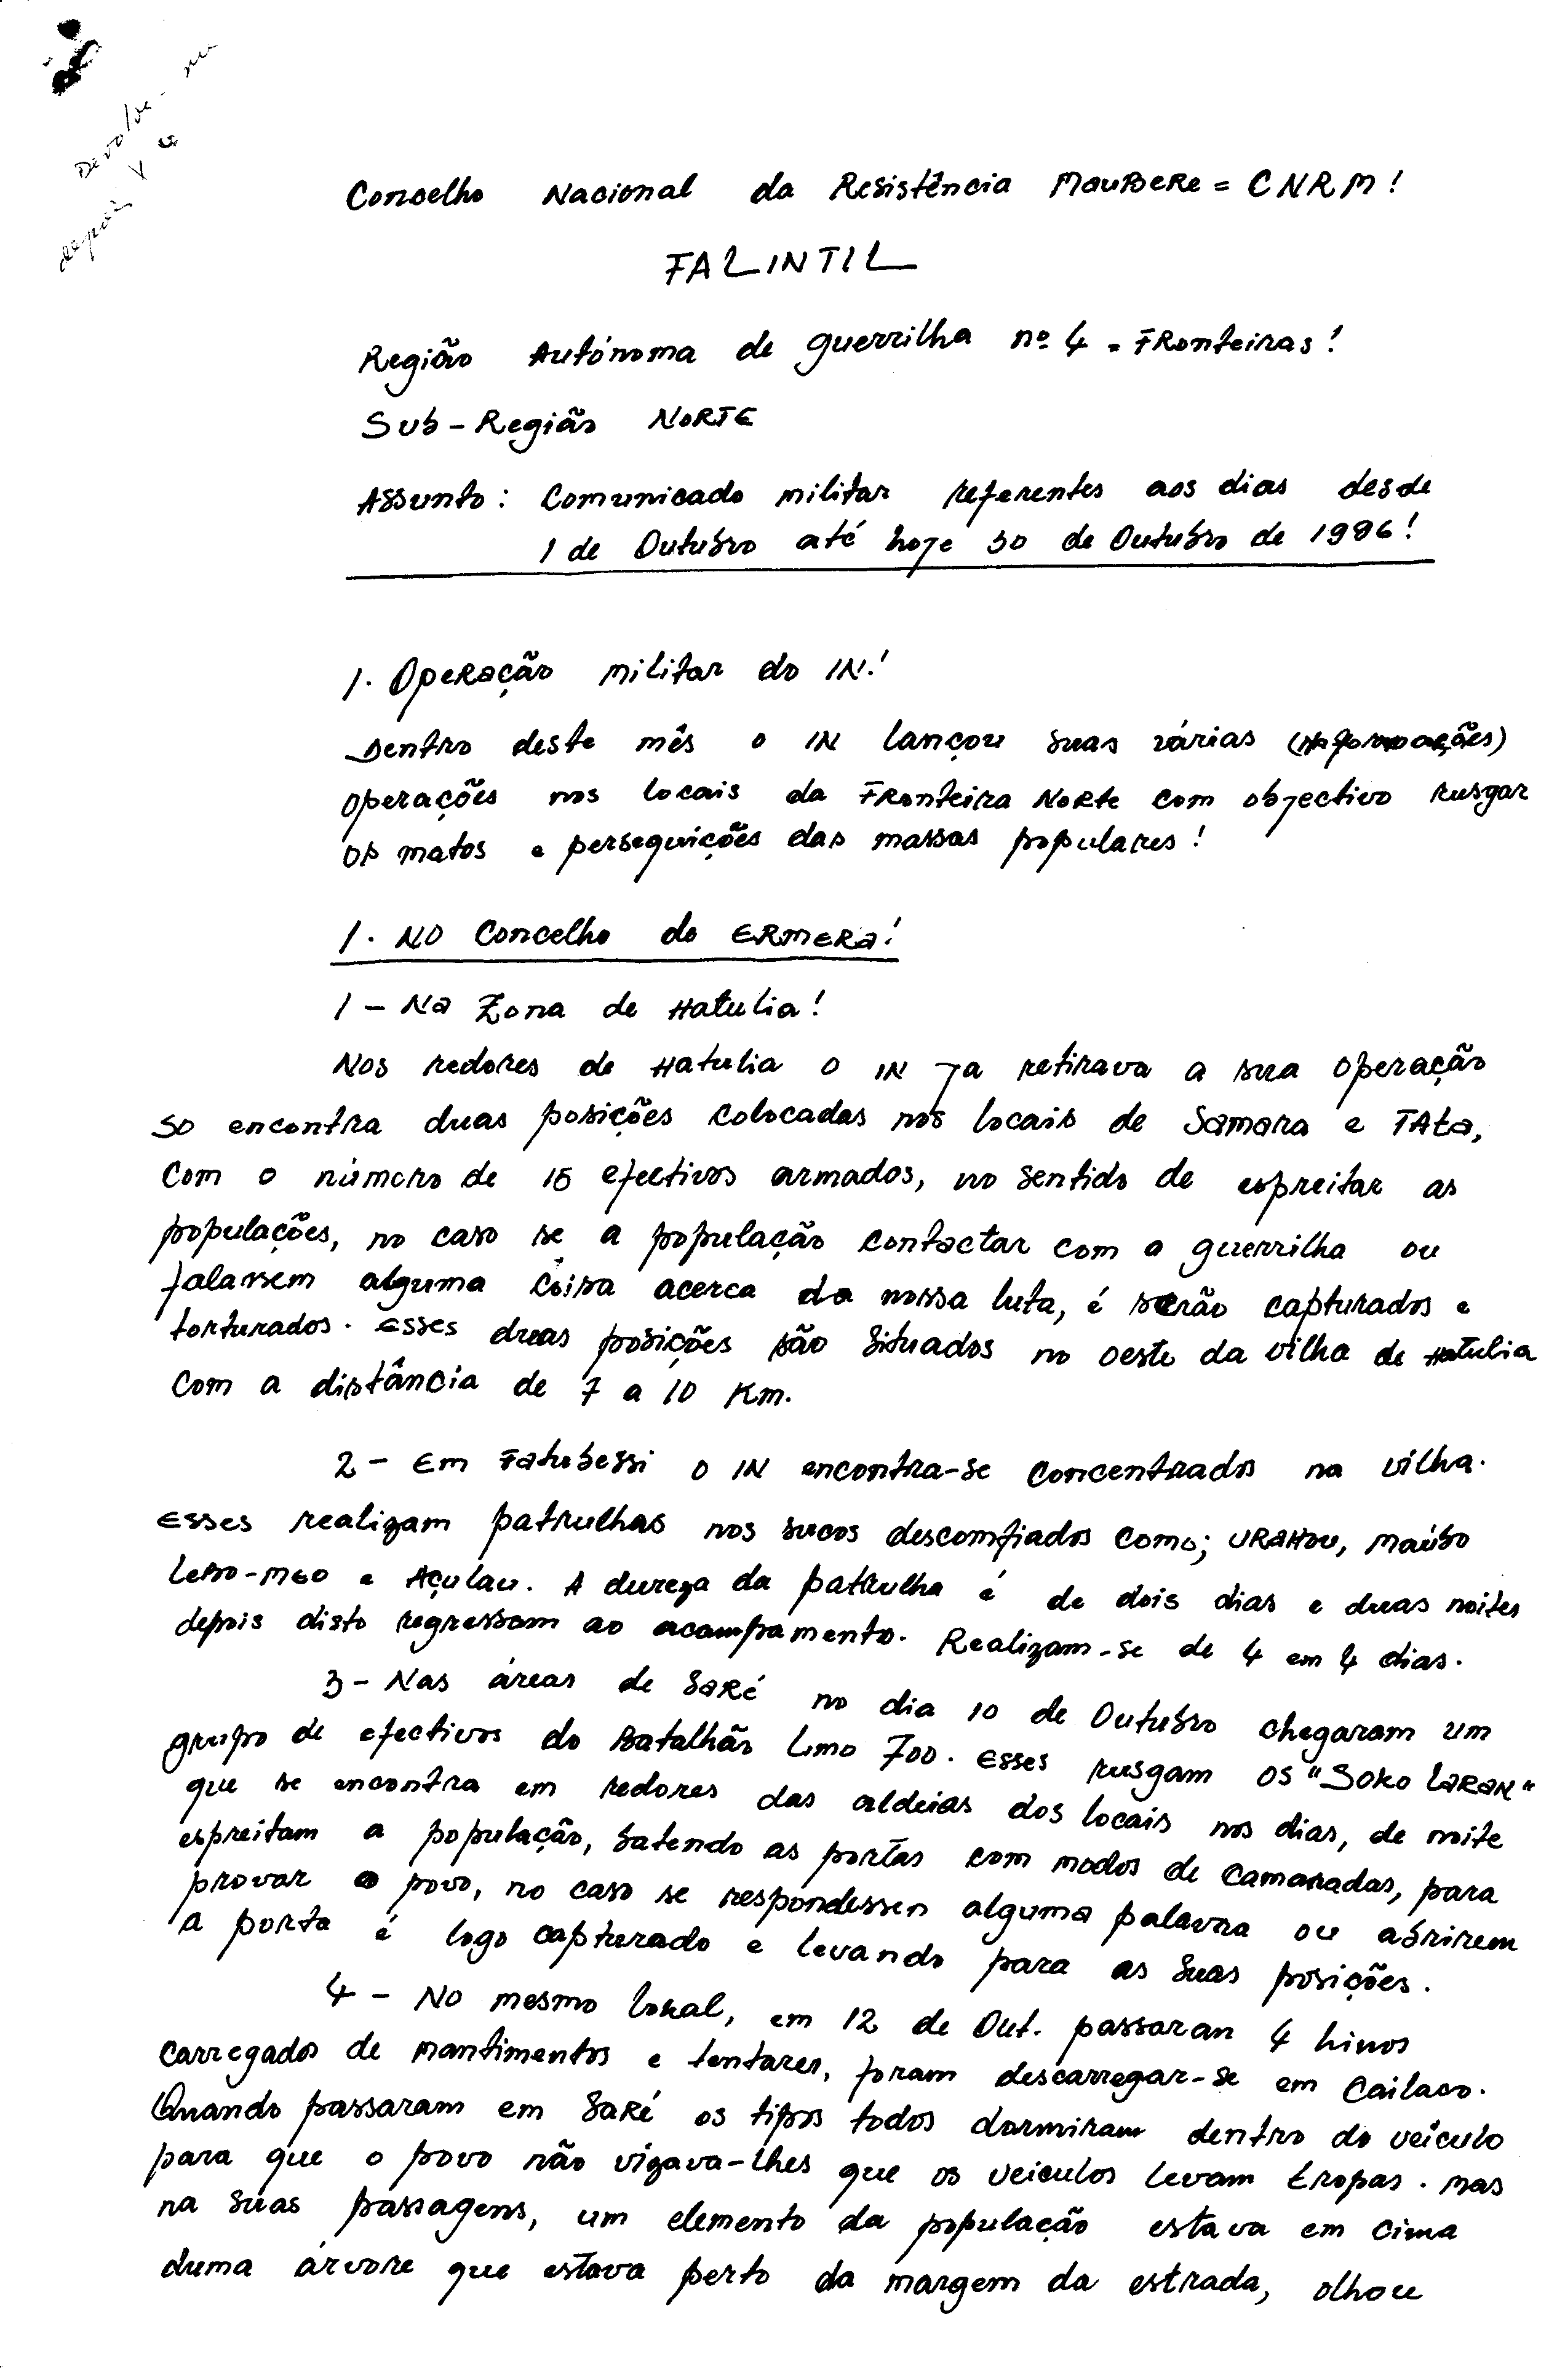 Devolve-me
depois
Conselho Nacional da Resistência MauBeRe = CNRM!
FALINTIL
Região Autónoma de guerrilha nº 4 = FRonteiras!
Sub-Região NORTE
Assunto: Comunicado militar referentes aos dias desde
1 de Outubro até hoje 30 de Outubro de 1996!
1. Operação militar do IN!
Dentro deste mês o IN lançou suas várias
operações nos locais da FRonteira Norte com objectivo rusgar
os matos e perseguições das massas populares!
1. NO Concelho do ERMERA!
1 - Na Zona de Hatulia!
Nos redores de Hatulia o IN ja retirava a sua operação
so encontra duas posições colocadas nos locais de Samara e TAta,
com o número de 15 efectivos armados, no sentido de espreitar as
populações, no caso se a população contactar com a guerrilha ou
falassem alguma coisa acerca da nossa luta, é serão capturados e
torturados. Esses duas posições são situados no oeste da vilha de Hatulia
com a distância de 7 a 10 Km.
2 - Em Fatubessi o IN encontra-se concentrados na vilha.
Esses realizam patrulhas nos sucos descomfiados como; URAHOU, Maúbo
Leso-meo e Açulau. A dureza da patrulha é de dois dias e duas noites
depois disto regressam ao acampamento. Realizam-se de 4 em 4 dias.
3 - Nas áreas de SaRé no dia 10 de Outubro chegaram um
grupo de efectivos do Batalhão Limo 700. Esses rusgam os "Soko LaRan"
que se encontra em redores das aldeias dos locais nos dias, de noite
espreitam a população, batendo as portas com modos de camaradas, para
provar o povo, no caso se respondessen alguma palavra ou abrirem
a porta é logo capturado e levando para as suas posições.
4 - No mesmo lokal, em 12 de Out. passaran 4 hinos
carregados de mantimentos e tentares, foram descarregar-se em Cailaco.
Quando passaram em SaRé os tipos todos dormiram dentro do veículo
para que o povo não vigava-lhes que os veiculos levam tropas. Mas
na suas passagens, um elemento da população estava em cima
duma árvore que estava perto da margem da estrada, olhou